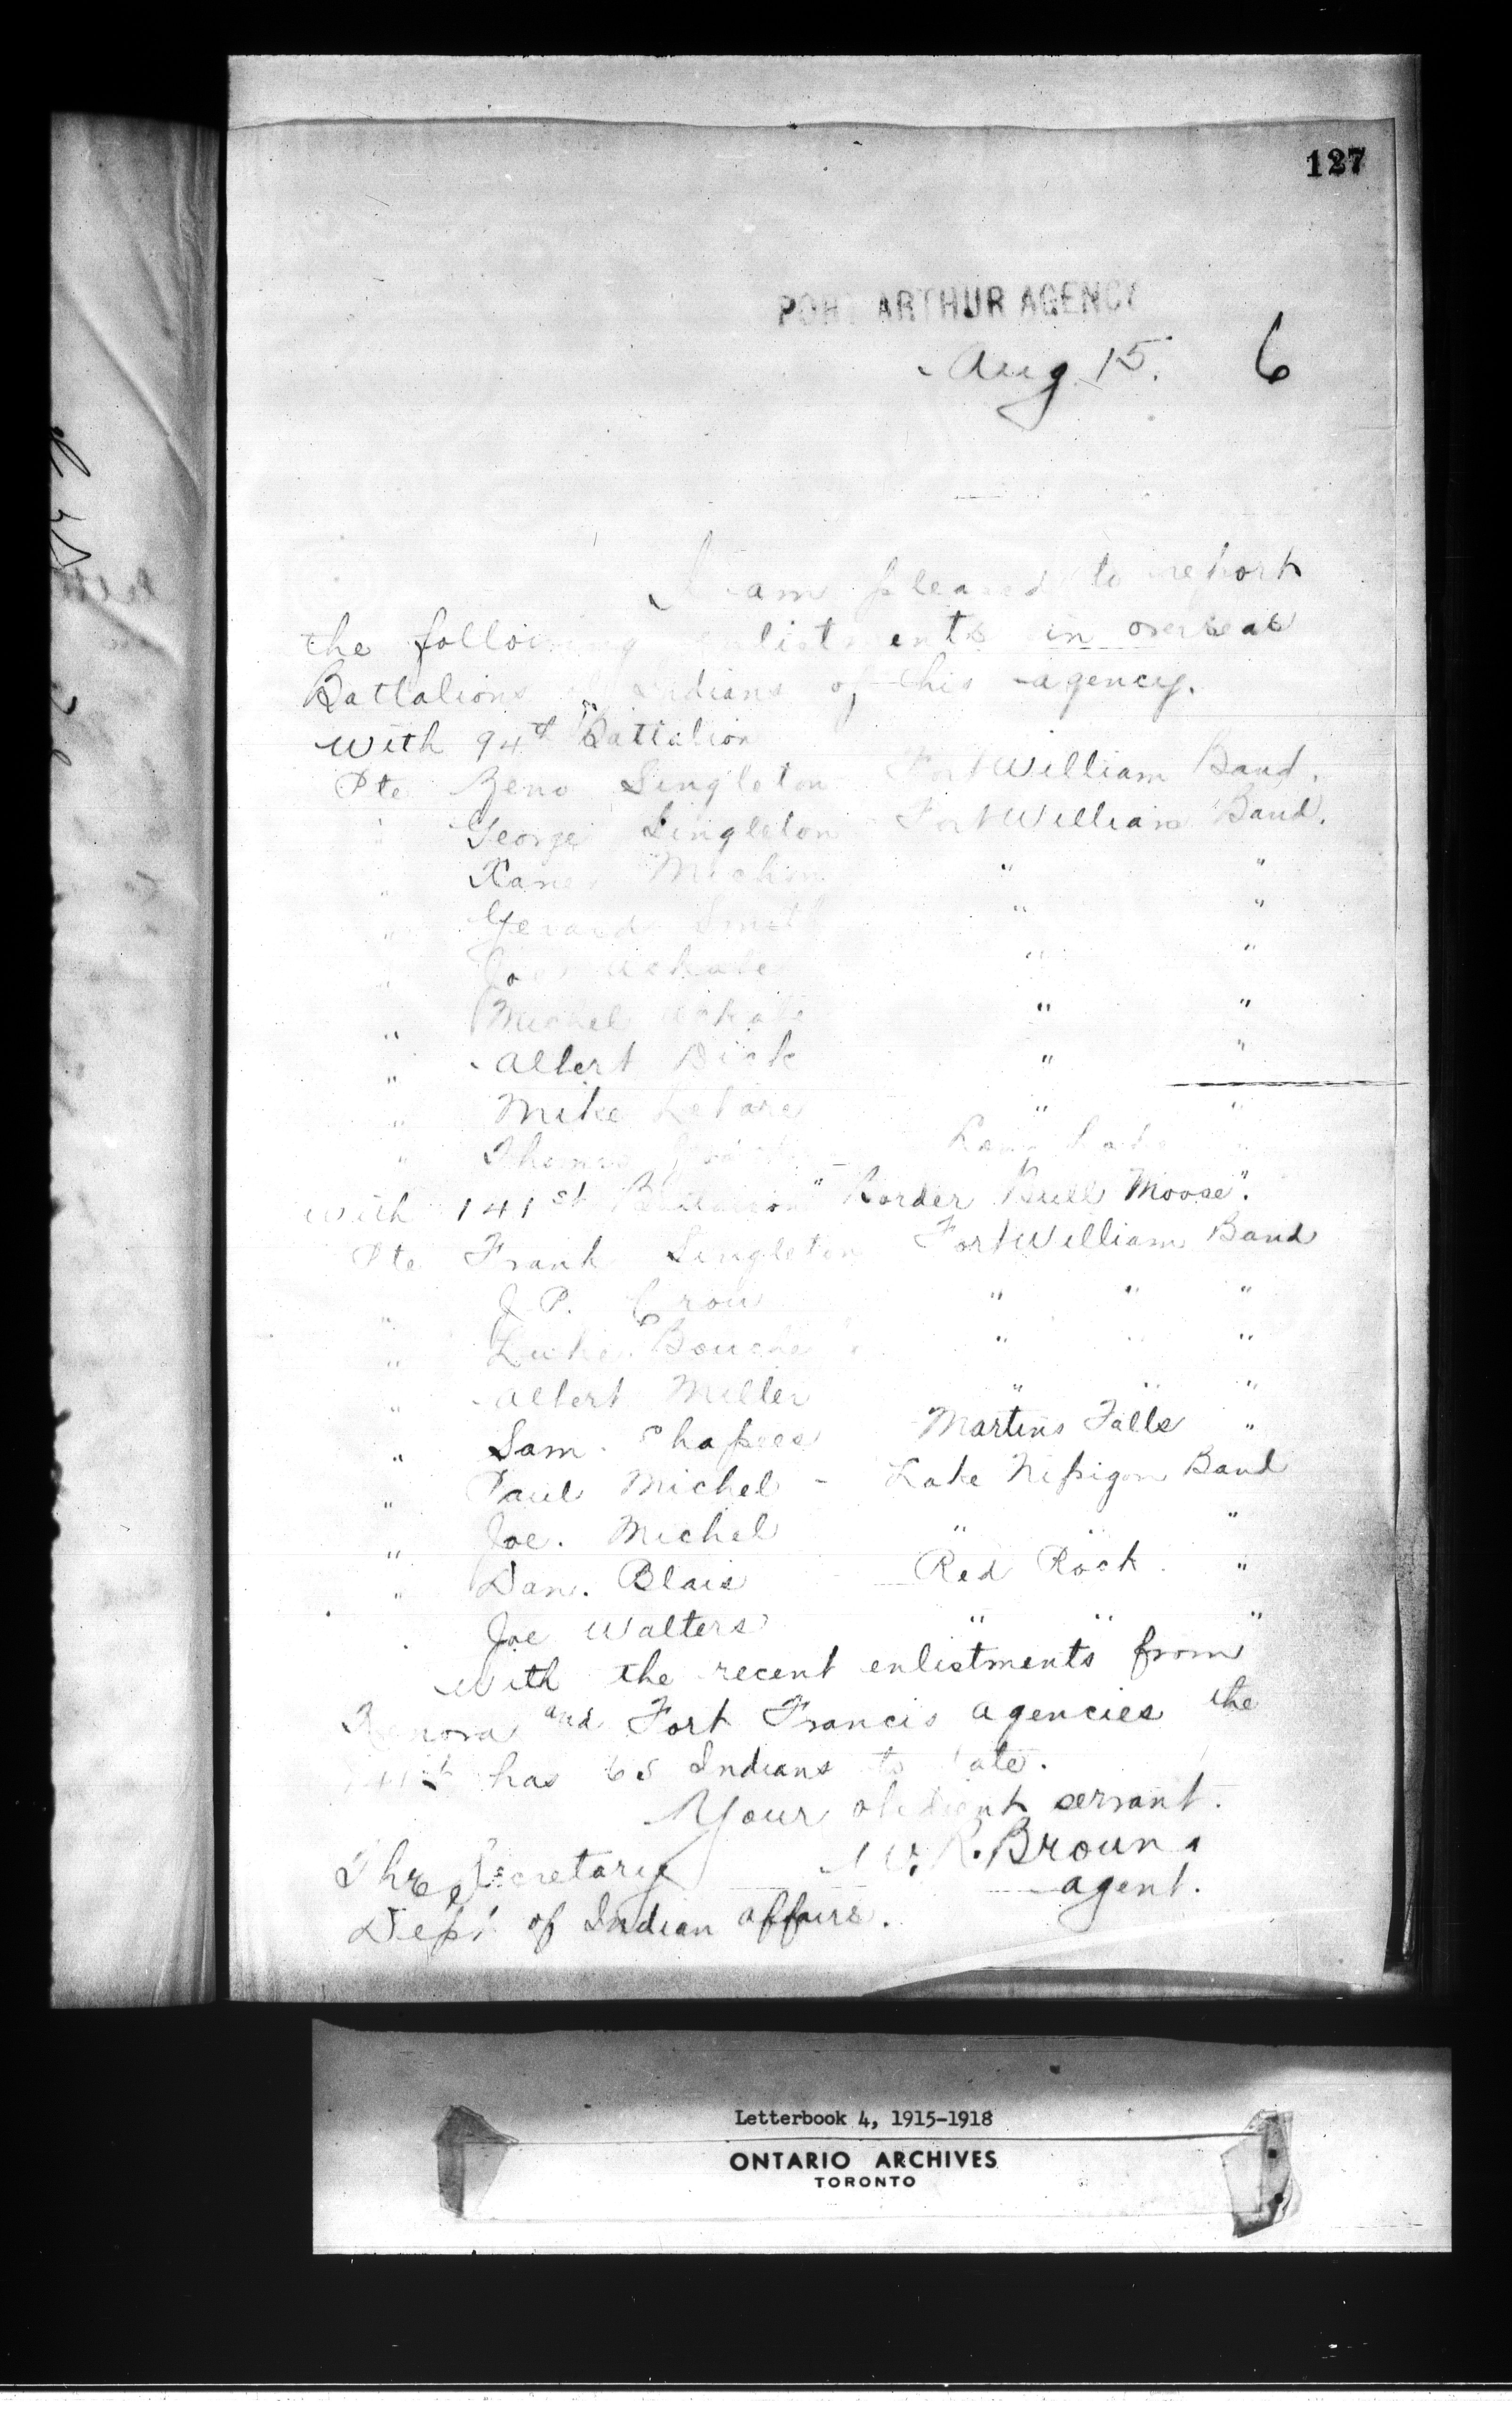 127
PORT ARTHUR AGENCY
Aug. 15. 6
I am pleased to report
the following enlistments in overseas
Battalions of Indians of this agency.
With 94th Battalion
Pte Zeno Singleton Fort William Band.
" George Singleton Fort William Band.
" " "
" Gerard Smith " "
" Joe " "
" Michel " "
" Albert Dick " "
" Mike " "
" Thomas "
With 141st Battalion "Border Bull Moose".
Pte Frank Singleton Fort William Band
" J. P. Crow " " "
" Luke Bouche " " "
" Albert Miller " " "
" Sam. Martins Falls "
" Paul Michel - Lake Nipigon Band
" Joe. Michel " " "
" Dan. Blais Red Rock. "
Joe Walters " " "
With the recent enlistments from
Kenora and Fort Francis agencies the
141st has 65 Indians to date.
Your obedient servant.
The Secretary W. R. Brown
agent.
Dept of Indian affairs.
Letterbook 4, 1915-1918
ONTARIO ARCHIVES
TORONTO